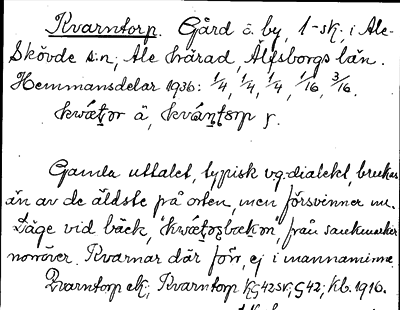 Kvarntorp. Gård å by, 1-sk. i Ale-
Skövde s:n, Ale härad, Älfsborgs län.
Hemmansdelar 1936: 1/4, 1/4, 1/4, 1/16, 3/16.
ä,
Gamla uttalet, typisk vg-dialekt, brukas
än av de äldste på orten, men försvinner nu.
Läge vid bäck, från sankmarker
norröver. Kvarnar där förr, ej i mannaminne.
Qvarntorp Kvarntorp G42; Kb. 1916.